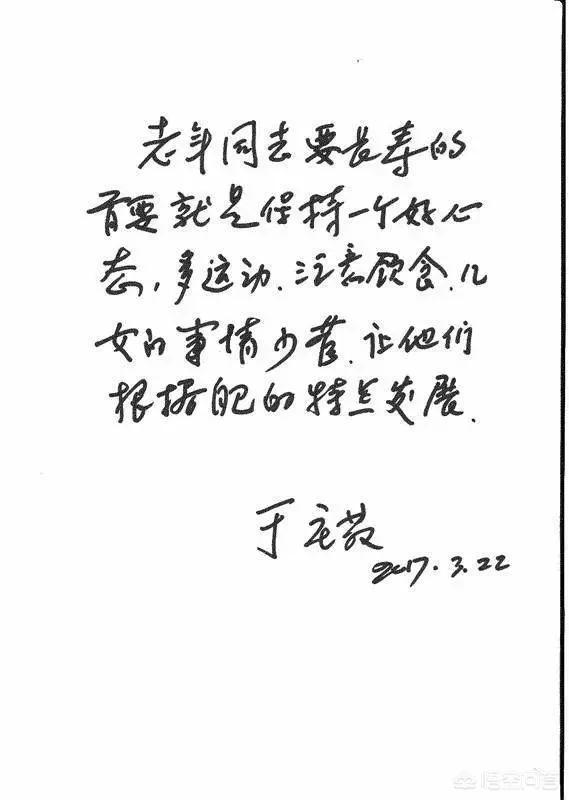 老年同志要长寿的
首要就是保持一个好心
态，多运动.注意饮食.儿
女的事情少管.让他们
根据自己的特点发展.
于
2017.3.22
悟空问答